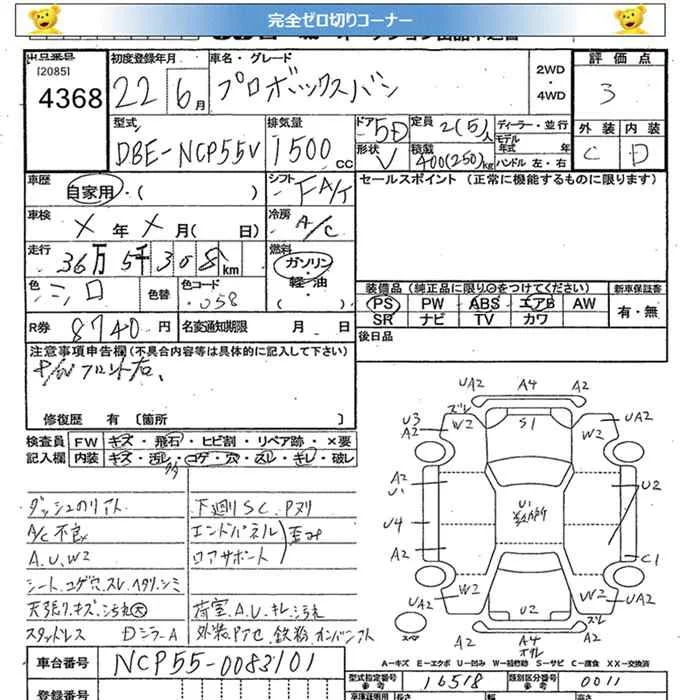 完全ゼロ切りコーナー
出品番号 初度登録年月 車名・グレード 評価点
[2085]
4368 22 6月 プロボックスバン 2WD・4WD 3
型式 排気量 ドア 5D 定員 2(5)人 ディーラー・並行 外装 内装
DBE-NCP55V 1500cc 形状 V 積載 400(250)kg モデル年式 年 ハンドル 左・右 C D
車歴 自家用・( ) シフト FA/T セールスポイント(正常に機能するものに限ります)
車検 X年X月( 日) 冷房 A/C
走行 36万5千308km 燃料 ガソリン・軽油・( )
装備品(純正品に限り○をつけてください) 新車保証書
色 シロ 色替 色コード 058 PS PW ABS エアB AW 有・無
SR ナビ TV カワ
R券 8740円 名変通知期限 月 日 後日品
注意事項申告欄(不具合内容等は具体的に記入して下さい)
修復歴 有 〔箇所 〕
検査員 FW キズ・飛石・ヒビ割・リペア跡・×要
記入欄 内装 キズ・汚レ・コゲ・穴・スレ・キレ・破レ
ダッシュのリアト 下廻りSC.Pヌリ
A/C不良 エンドパネル 歪み
A.U.W2 コアサポート
シート.コゲ穴.スレ.ヘタリ.シミ
天張り.キズ.汚れ大 荷室.A.U.キレ.汚れ
スタッドレス Dシラ-A 外装Pアセ.鉄粉
UA2 A4 A2
ズレ
U3 A2 W2 S1 W2 UA2
A2 U1 U1 U2
U4
A2 C1
UA2 W2 U2 W2 UA2
スペア UA2 A4 A2 ズレ
A-キズ E-エクボ U-凹み W-補修跡 S-サビ C-腐食 XX-交換済
車台番号 NCP55-0083101 型式指定番号 参考 16518 類別区分番号 参考 0011
登録番号 長さ 幅 高さ